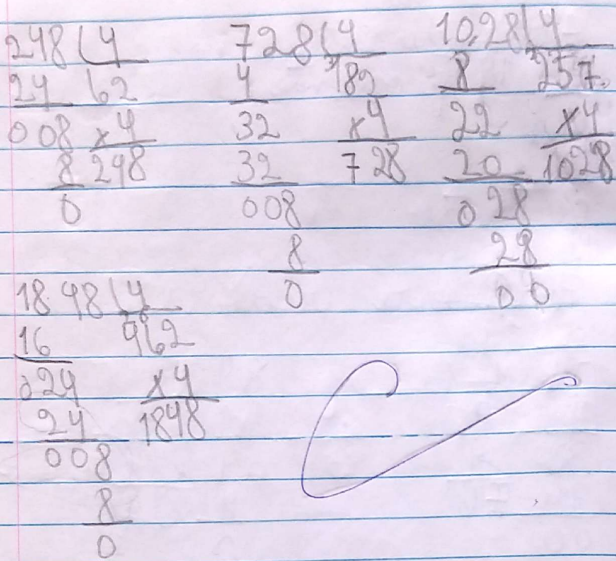 248 4
24 62
008 x4
8 248
0
728 4
4 182
32 x4
32 728
008
8
0
10.28 4
8 257
22 x4
20 1028
028
28
00
18.48 4
16 462
024 x4
24 1848
008
8
0